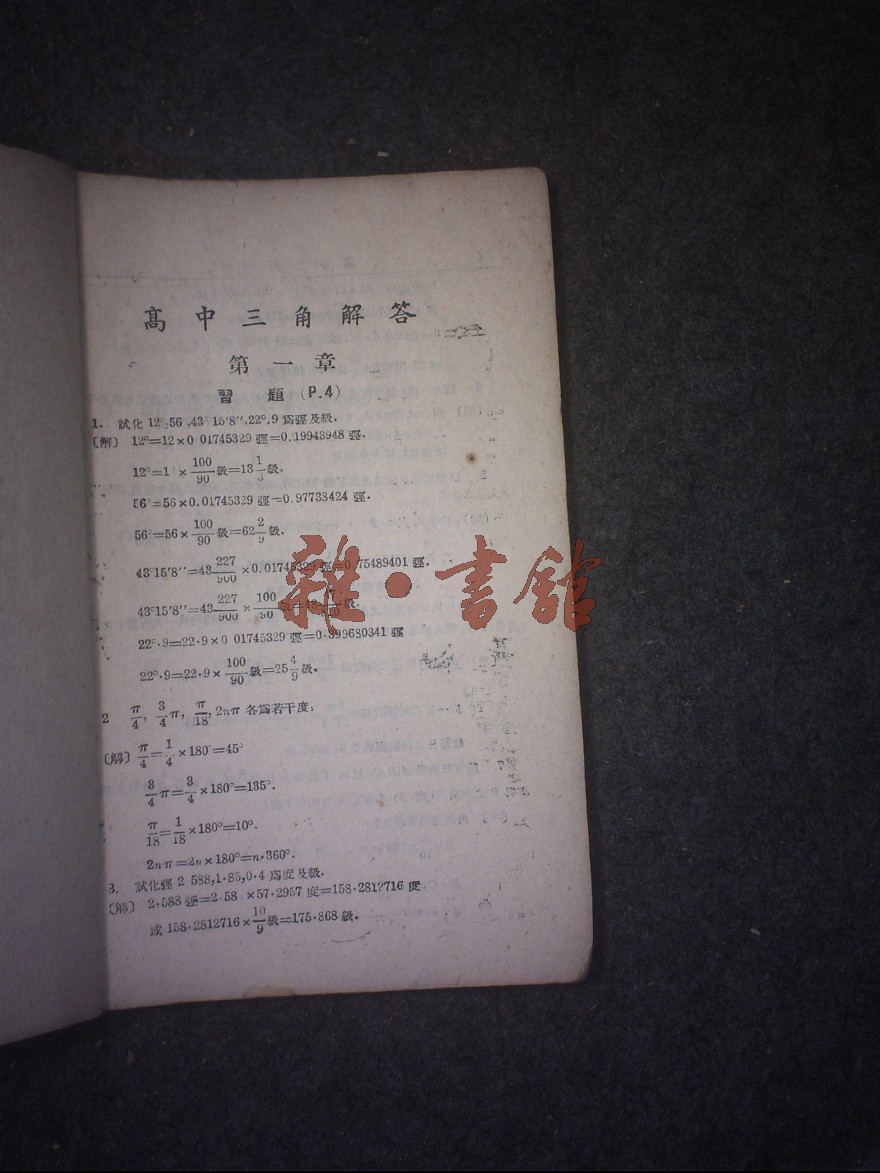 高中三角解答
第一章
習題 (P.4)
1. 試化 12°,56°,43°15′8″,22°.9 爲弳及級.
〔解〕 12°=12×0 01745329 弳=0.19943948 弳.
12°=1 × 100/90 級=13 1/3 級.
56°=56×0.01745329 弳=0.97738424 弳.
56°=56× 100/90 級=62 2/9 級.
43°15′8″=43 227/900 ×0.01745329 弳=0.75489401 弳.
43°15′8″=43 227/900 × 100/90 級=48 級.
22°.9=22·9×0 01745329 弳=0·399680341 弳
22°.9=22·9× 100/90 級=25 4/9 級.
2 π/4, 3/4 π, π/18, 2nπ 各爲若干度:
〔解〕 π/4 = 1/4 ×180°=45°
3/4 π= 3/4 ×180°=135°.
π/18 = 1/18 ×180°=10°.
2nπ=2n×180°=n·360°.
3. 試化弳 2 588,1·85,0·4 爲度及級.
〔解〕 2·588 弳=2·58 ×57·2957 度=158·2812716 度
或 158·2812716× 10/9 級=175·868 級.
雜·書館